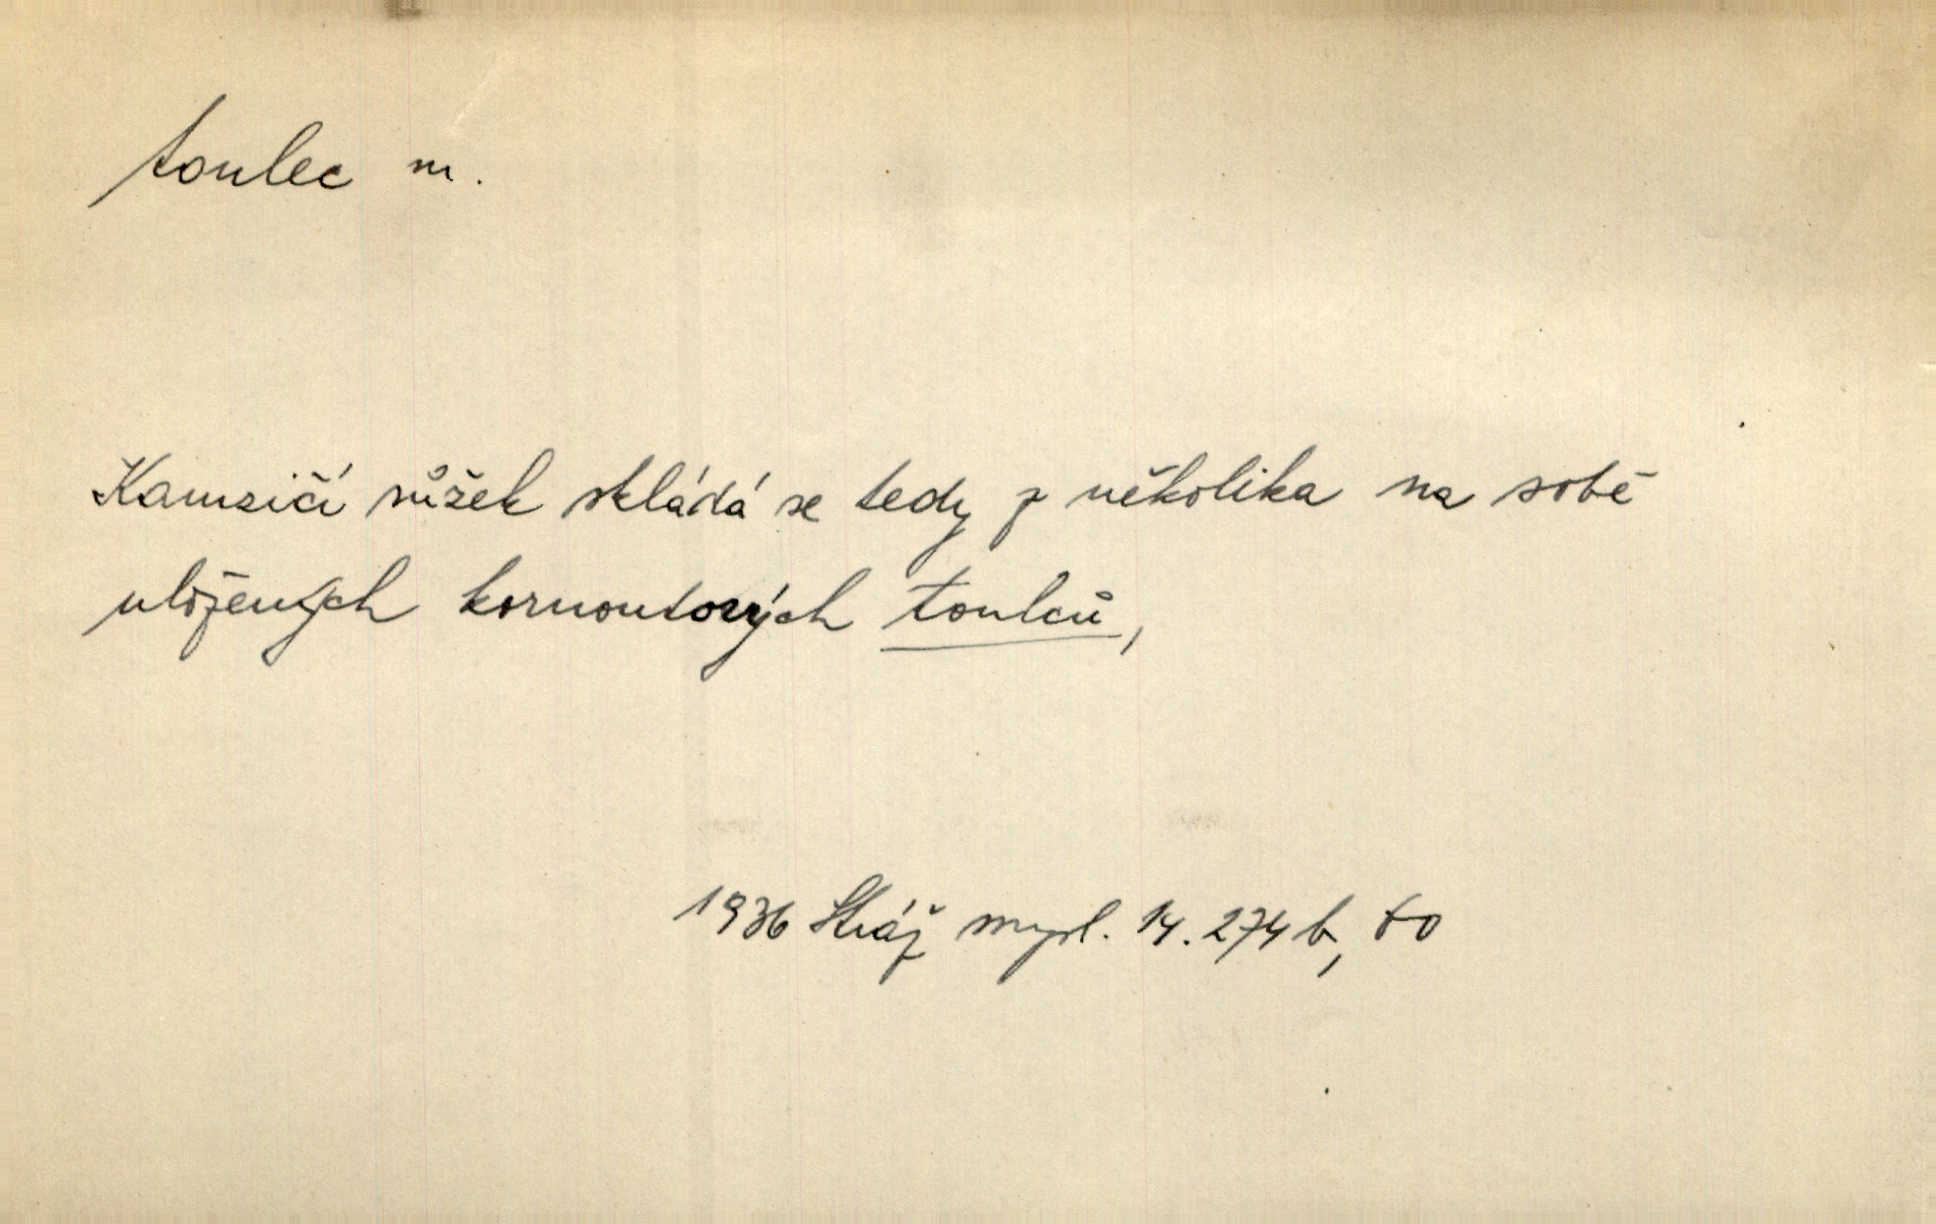 toulec m.
Kamzičí růžek skládá se tedy z několika na sobě
uložených kornoutových toulců,
1936 Stráž mysl. 14. 274 b, to